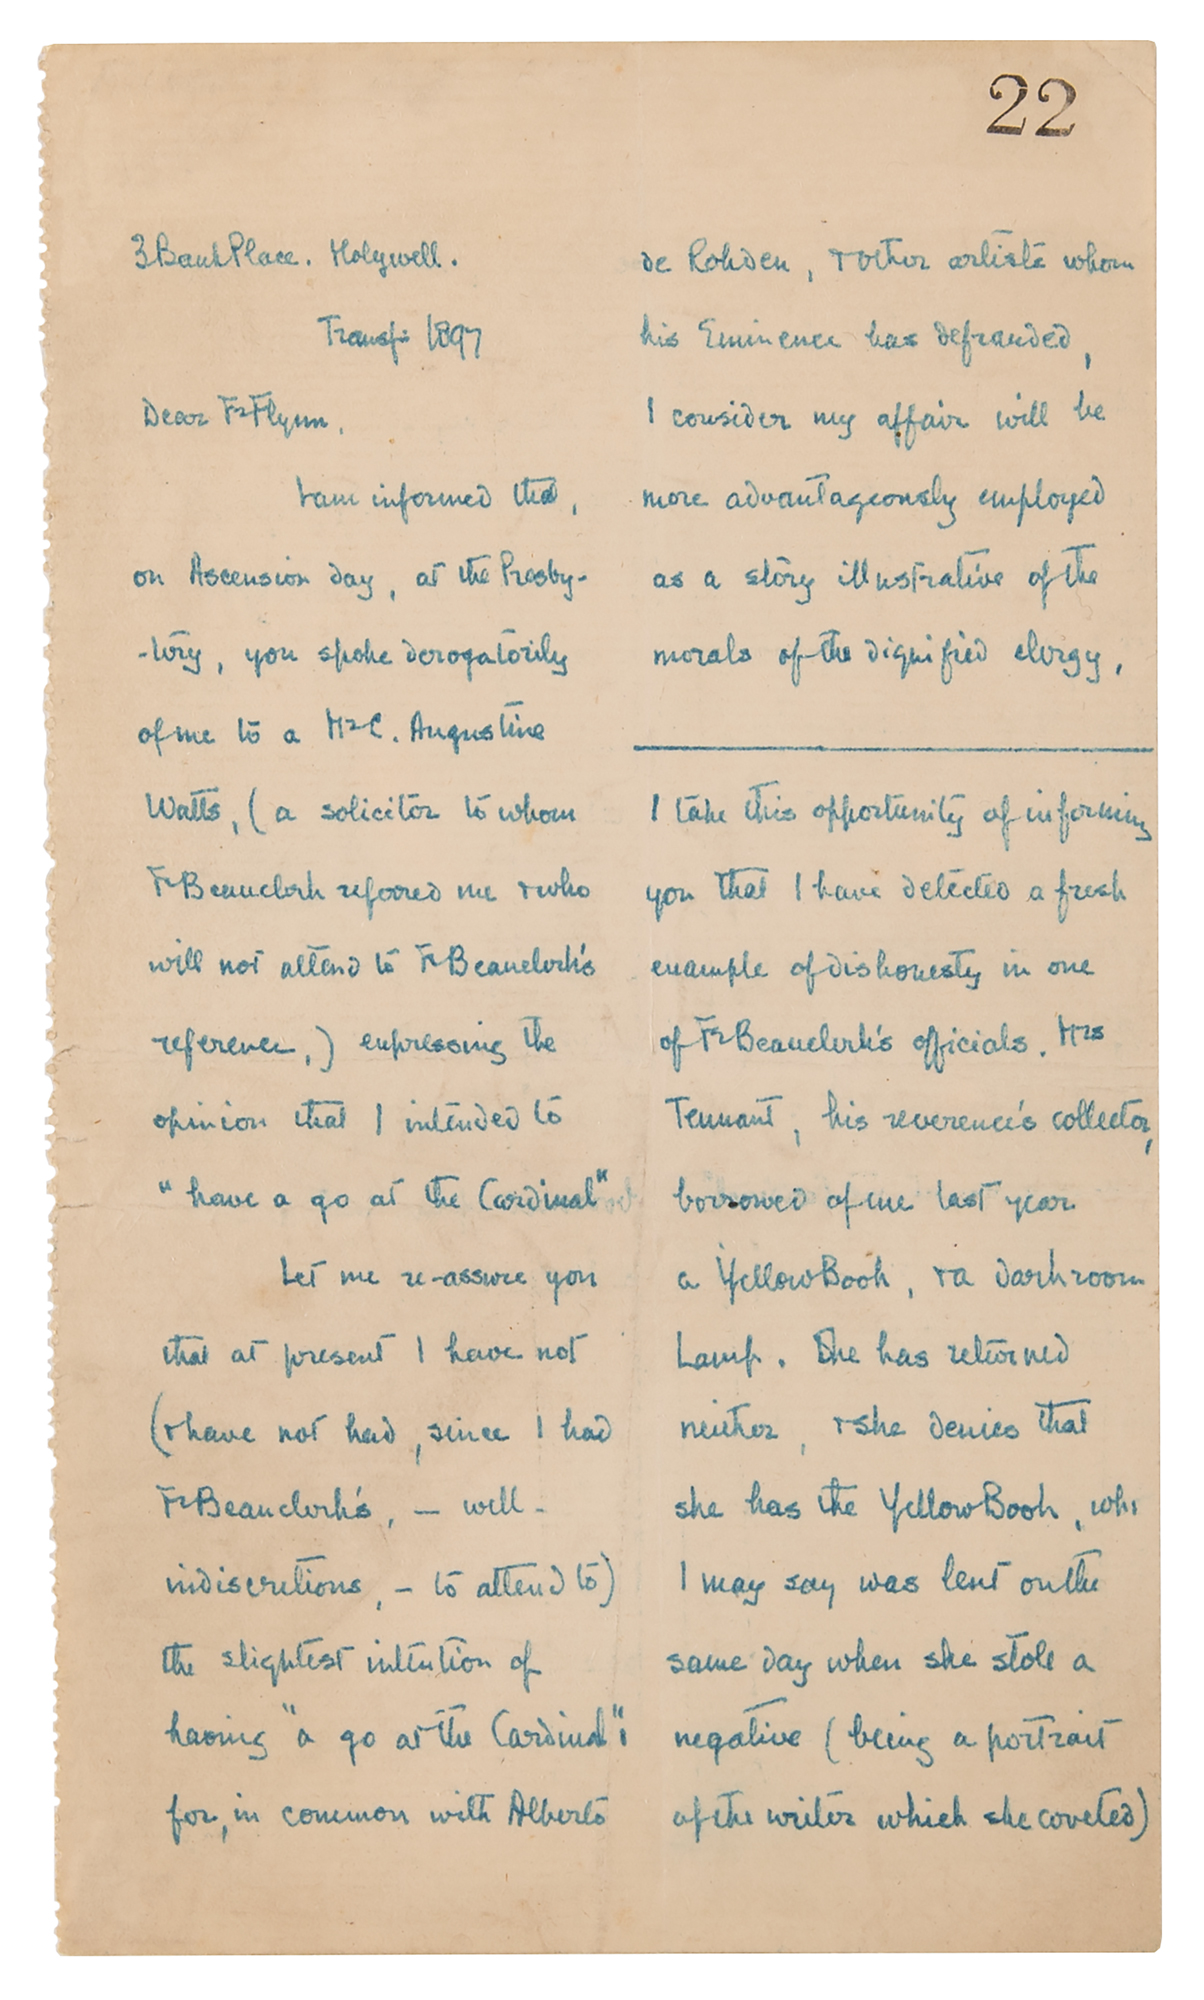 22
3 Bank Place. Holywell.
Transf: 1897
Dear Fr Flynn,
I am informed that,
on Ascension day, at the Presby-
-tory, you spoke derogatorily
of me to a Mr C. Augustine
Watts, (a solicitor to whom
Fr Beauclerk referred me + who
will not attend to Fr Beauclerk's
reference,) expressing the
opinion that I intended to
"have a go at the Cardinal"
Let me re-assure you
that at present I have not
(+ have not had, since I had
Fr Beauclerk's, — well -
indiscretions, — to attend to)
the slightest intention of
having "a go at the Cardinal":
for, in common with Alberto
de Rohden, + other artists whom
his Eminence has defrauded,
I consider my affair will be
more advantageously employed
as a story illustrative of the
morals of the dignified clergy,
I take this opportunity of informing
you that I have detected a fresh
example of dishonesty in one
of Fr Beauclerk's officials. Mrs
Tennant, his reverence's collector,
borrowed of me last year
a Yellow Book, + a darkroom
Lamp. She has returned
neither, + she denies that
she has the Yellow Book, whi
I may say was lent on the
same day when she stole a
negative (being a portrait
of the writer which she coveted)